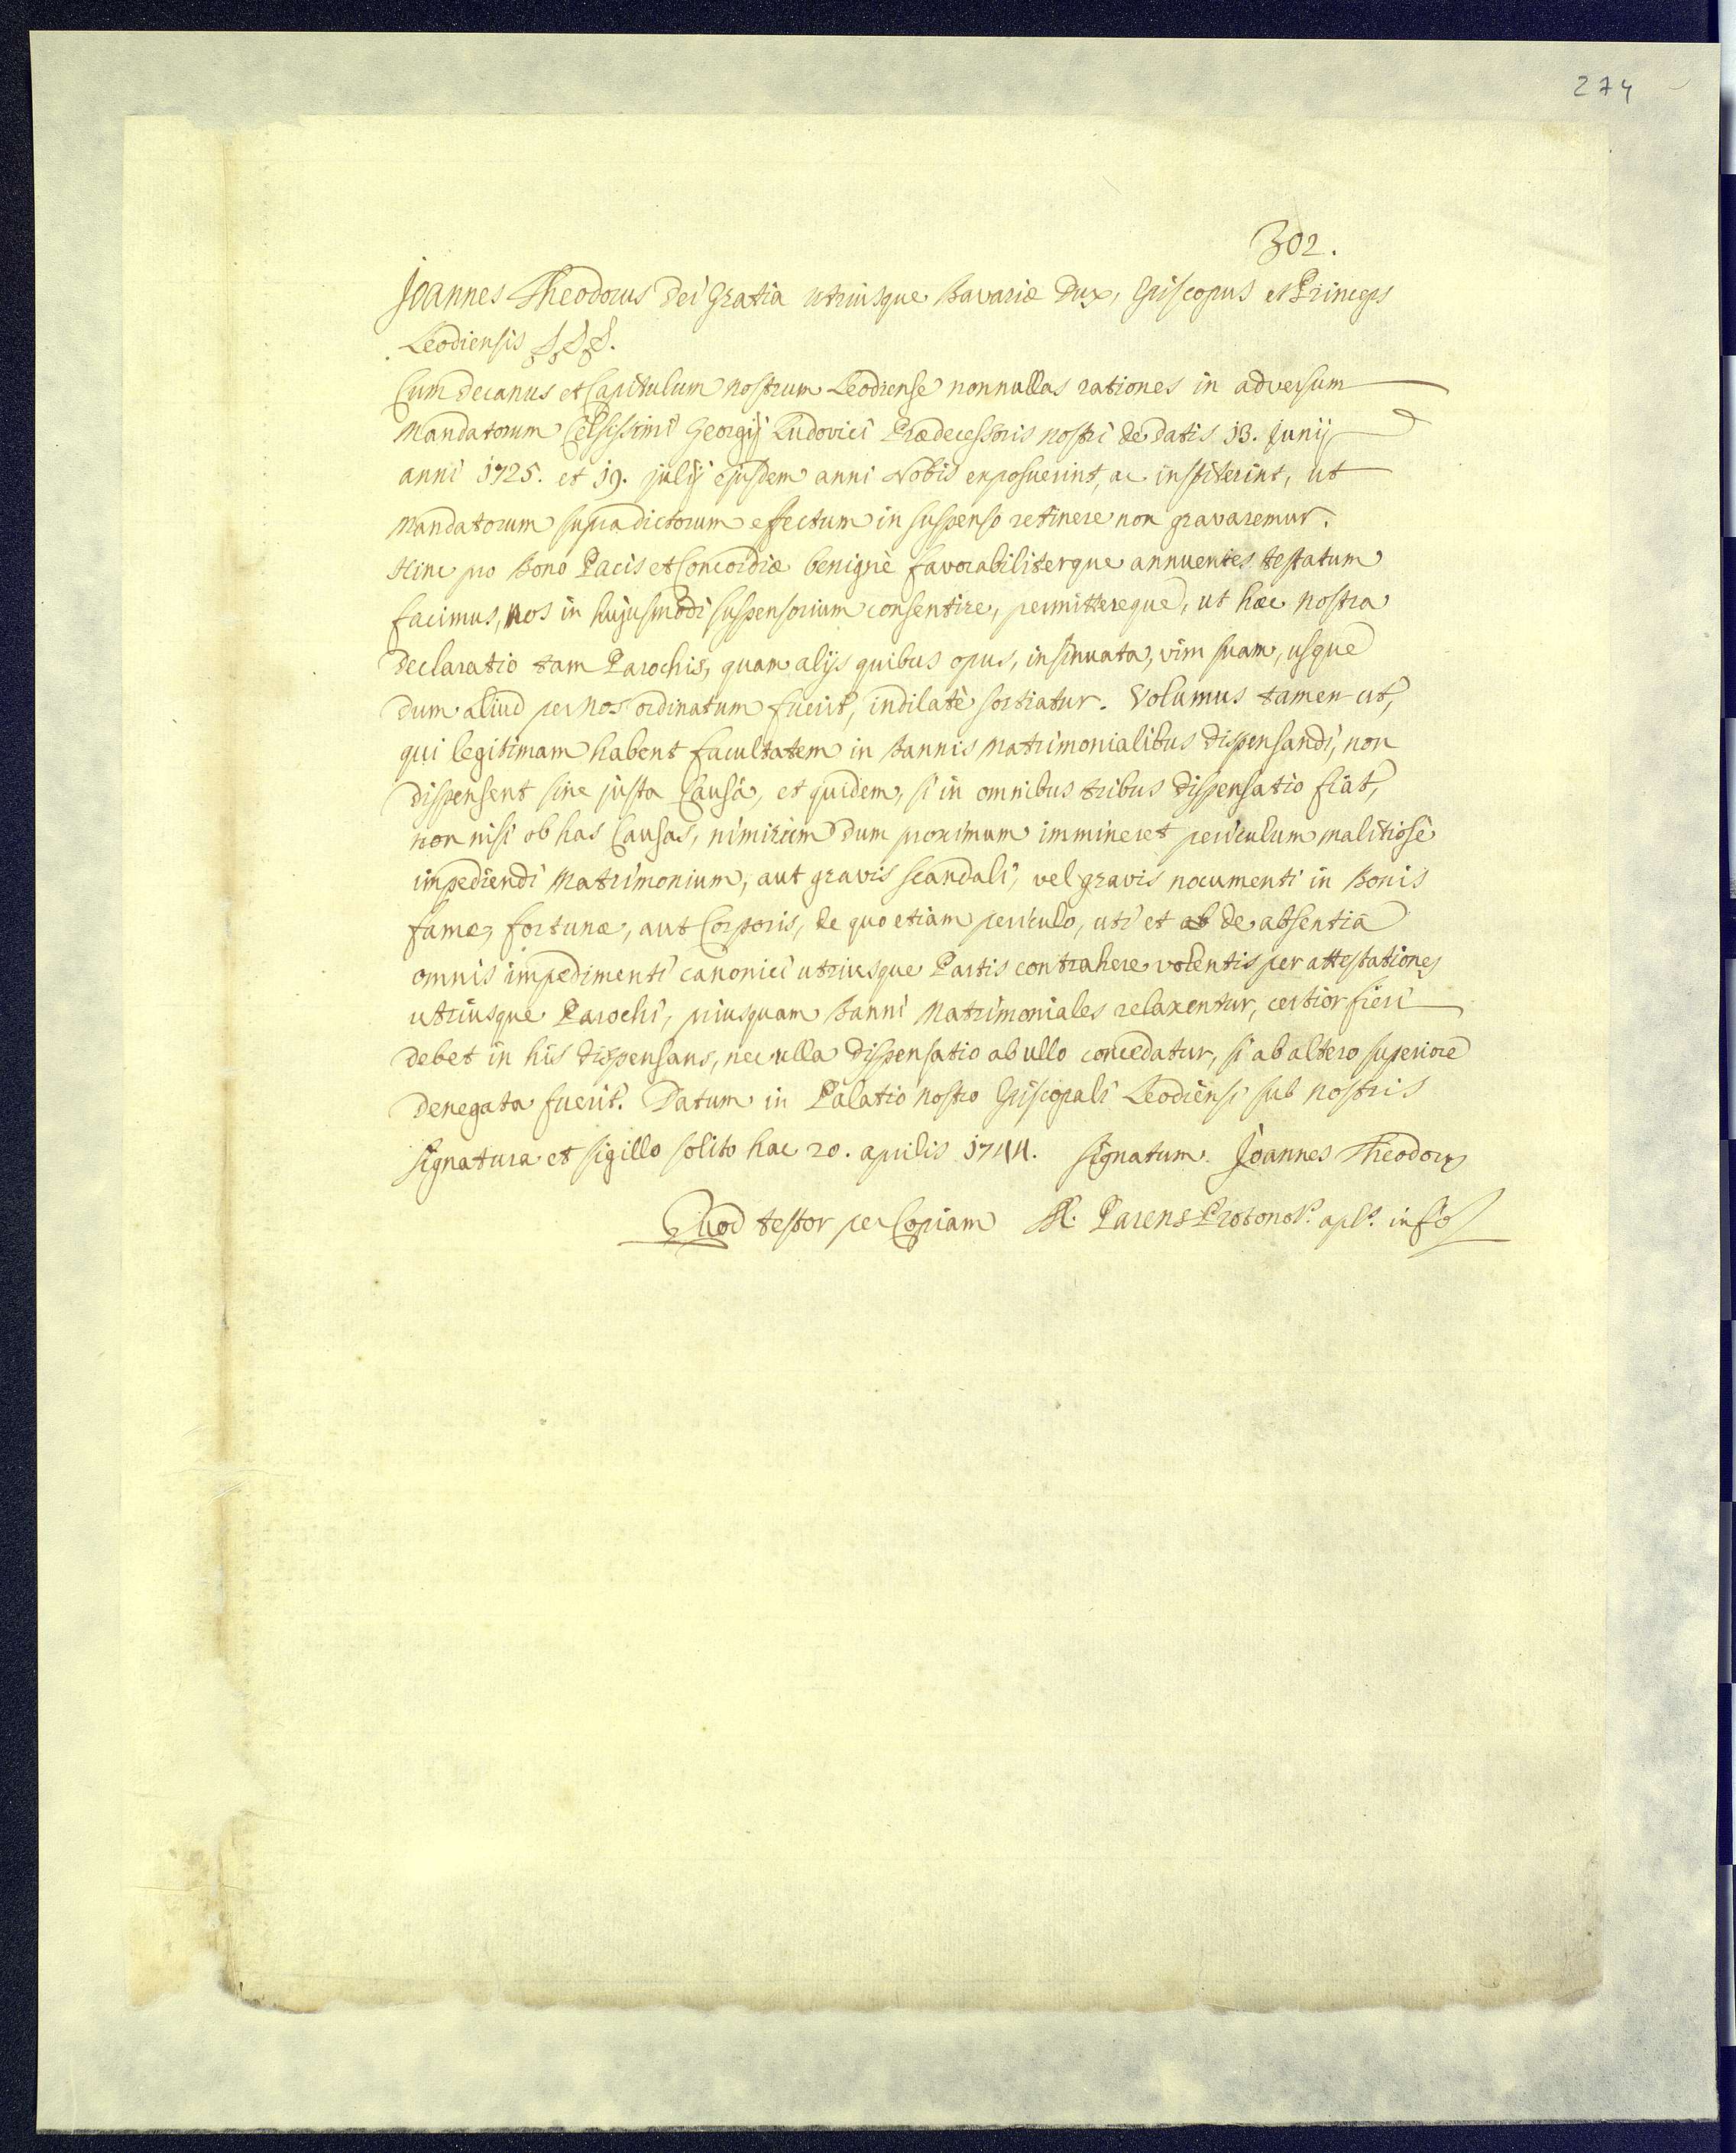 274
302.
Joannes Theodorus Dei Gratia utriusque Bavariæ Dux, Episcopus et Princeps
Leodiensis &&&.
Cum Decanus et Capitulum nostrum Leodiense nonnullas rationes in adversum
Mandatorum Celsissimi Georgij Ludovici Prædecessoris nostri de datis 13. Junij
anni 1725. et 19. julij ejusdem anni Nobis exposuerint, ac institerint, ut
Mandatorum supradictorum effectum in suspenso retinere non gravaremur.
Hinc pro Bono Pacis et Concordiæ benignè favorabiliterque annuentes testatum
facimus, nos in hujusmodi suspensorium consentire, permittereque, ut hæc nostra
Declaratio tam Parochis, quam alijs quibus opus, insinuata, vim suam, usque
dum aliud per nos ordinatum fuerit, indilatè sortiatur. Volumus tamen ut,
qui legitimam habent facultatem in Bannis Matrimonialibus dispensandi, non
dispensent sine justa Causâ, et quidem, si in omnibus tribus dispensatio fiat,
non nisi ob has Causas, nimirùm dum proximum immineret periculum malitiosè
impediendi Matrimonium, aut gravis scandali, vel gravis nocumenti in Bonis
famæ, fortunæ, aut Corporis, de quo etiam periculo, uti et ab de absentiâ
omnis impedimenti canonici utriusque Partis contrahere volentis per attestationes
utriusque Parochi, priusquam Banni Matrimoniales relaxentur, certior fieri
debet in his dispensans, nec ulla dispensatio ab ullo concedatur, si ab altero superiore
denegata fuerit. Datum in Palatio nostro Episcopali Leodiensi sub nostris
signatura et sigillo solito hac 20. aprilis 1744. signatum. Joannes Theodorus
Quod testor per Copiam H. Parens Protonot. aplt. in fi